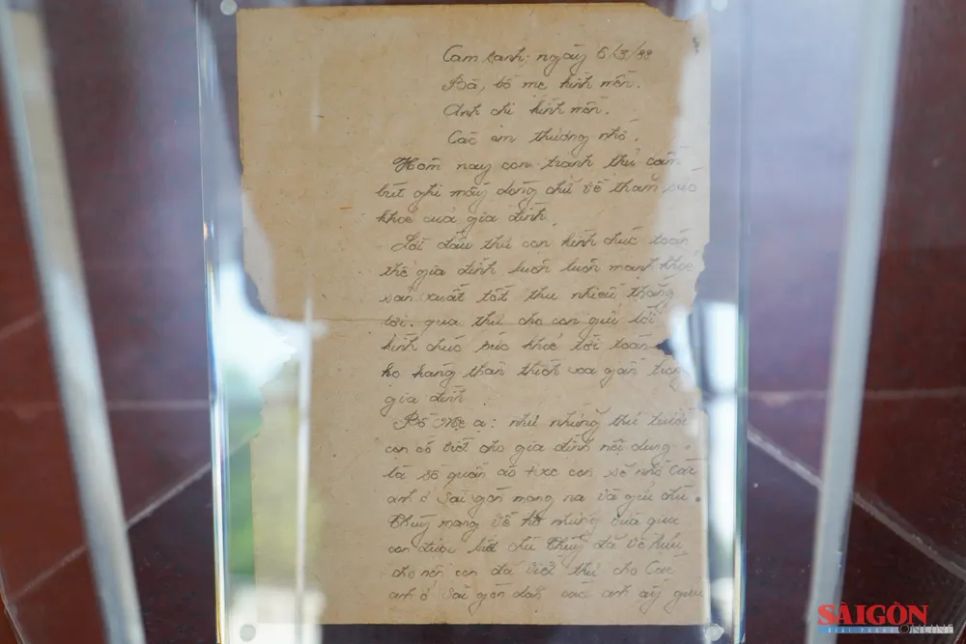 Cam Ranh, ngày 6/3/88
Bà, bố mẹ kính mến.
Anh chị kính mến.
Các em thương nhớ.
Hôm nay con tranh thủ cầm
bút ghi mấy dòng chữ về thăm sức
khoẻ của gia đình.
Lời đầu thư con kính chúc toàn
thể gia đình luôn luôn mạnh khoẻ
sản xuất tốt thu nhiều thắng
lợi. qua thư cho con gửi lời
kính chúc sức khoẻ tới toàn
họ hàng thân thích xa gần trong
gia đình
Bố Mẹ ạ: như những thư trước
con có biết cho gia đình nội dung
là số quần áo con sẽ nhờ các
anh ở Sài gòn mang na và gửi chú
Thuỷ mang về hộ nhưng vừa qua
con được biết chú Thuỷ đã về hưu
cho nên con đã viết thư cho các
anh ở Sài gòn các anh ấy gửi
SÀIGÒN
GIẢI PHÓNG ONLINE